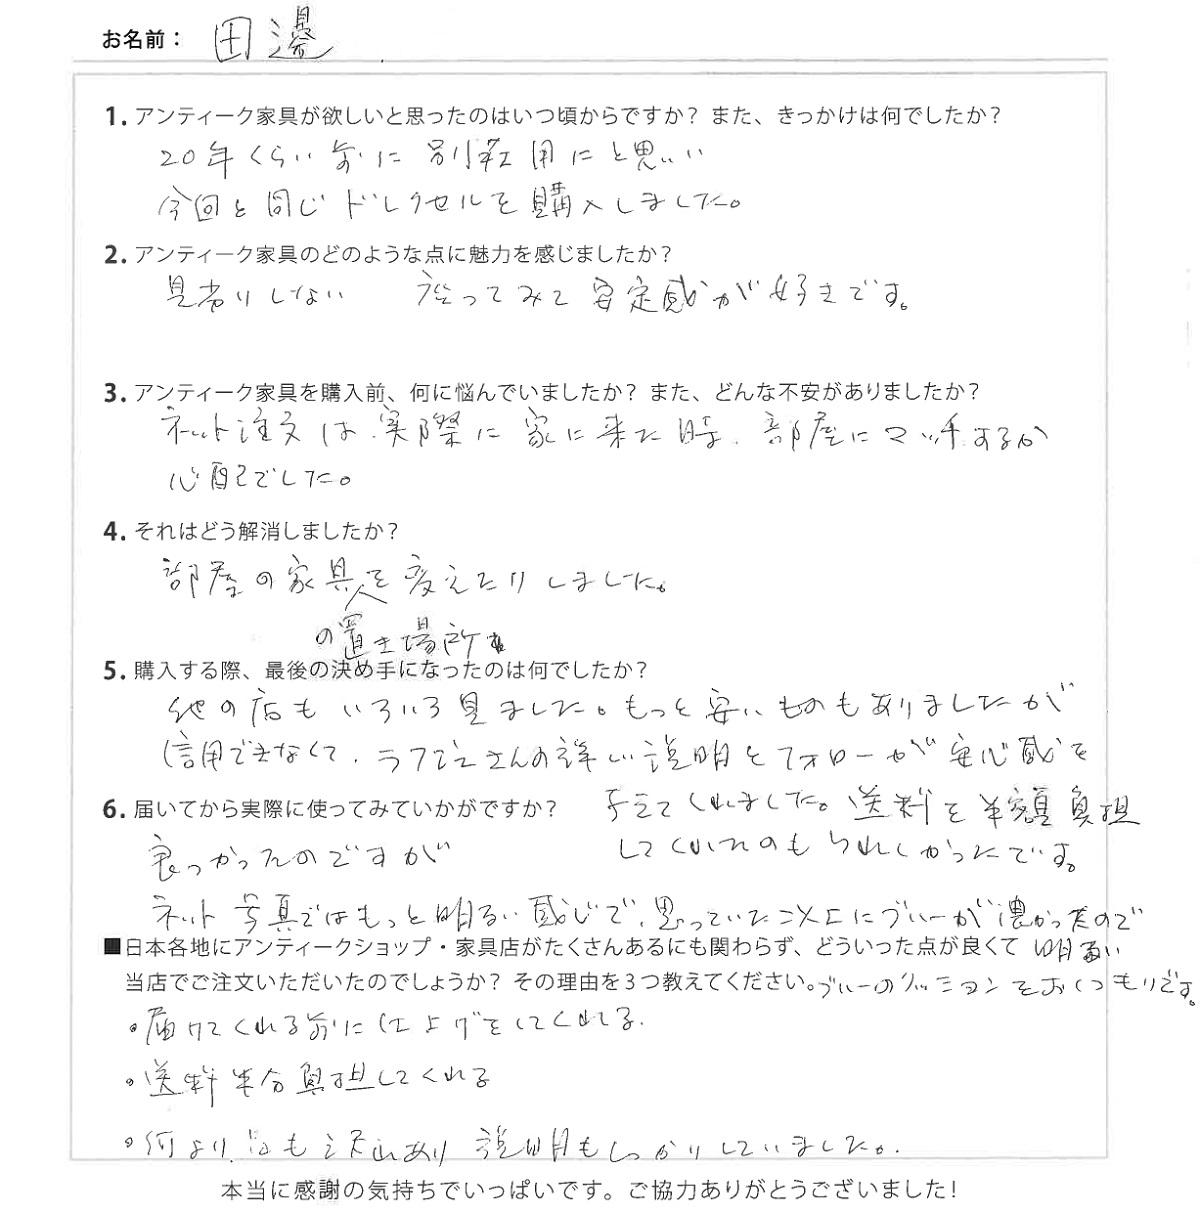 お名前： 田邊
1. アンティーク家具が欲しいと思ったのはいつ頃からですか？ また、きっかけは何でしたか？
20年くらい前に 別荘用にと思い
今回と同じドレクセルを購入しました。
2. アンティーク家具のどのような点に魅力を感じましたか？
見劣りしない 座ってみて安定感が好きです。
3. アンティーク家具を購入前、何に悩んでいましたか？ また、どんな不安がありましたか？
ネット注文は、実際に家に来た時、部屋にマッチするか
心配でした。
4. それはどう解消しましたか？
部屋の家具を変えたりしました。
の置き場所
5. 購入する際、最後の決め手になったのは何でしたか？
他の店もいろいろ見ました。もっと安いものもありましたが
信用できなくて、ラフジュさんの詳しい説明とフォローが安心感を
与えてくれました。送料を半額負担
してくれたのもうれしかったです。
6. 届いてから実際に使ってみていかがですか？
良かったのですが
ネット写真ではもっと明るい感じで、思っていた以上にブルーが濃かったので
明るい
ブルーのクッションをおくつもりです。
■日本各地にアンティークショップ・家具店がたくさんあるにも関わらず、どういった点が良くて
当店でご注文いただいたのでしょうか？ その理由を３つ教えてください。
・届けてくれる前に仕上げをしてくれる.
・送料半分負担してくれる
・何より、品も沢山あり 説明もしっかりしていました。
本当に感謝の気持ちでいっぱいです。ご協力ありがとうございました！